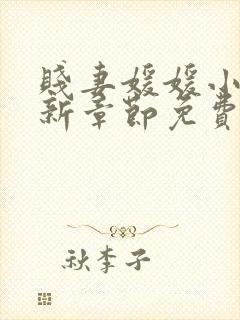 賤妻媛媛小
新章節免費
秋李子